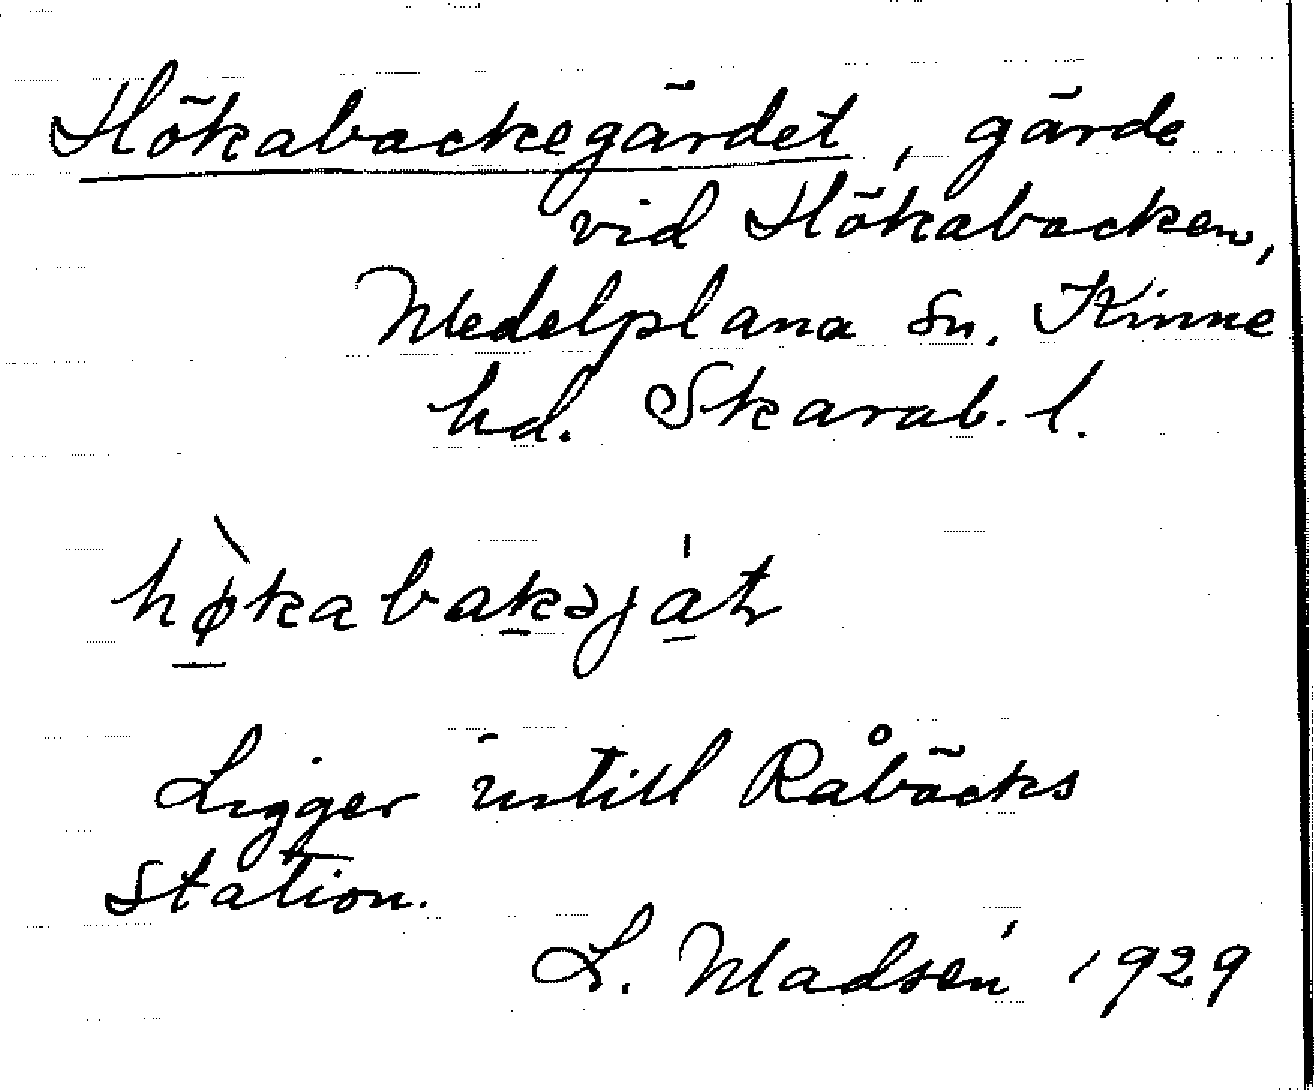 Hökabackegärdet, gärde
vid Hökabacken,
Medelplana sn. Kinne
hd. Skarab. l.
hø̀kabakəját
Ligger intill Råbäcks
Station.
L. Madsén 1929